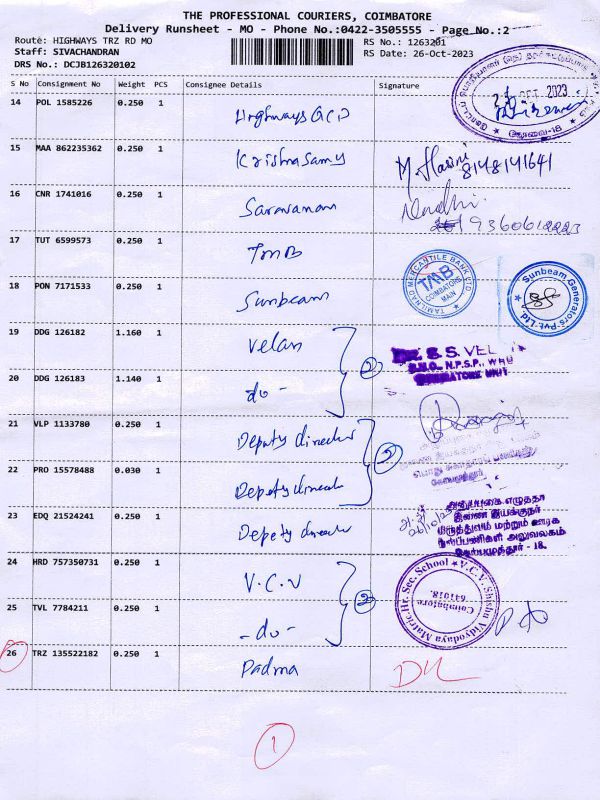 THE PROFESSIONAL COURIERS, COIMBATORE
Delivery Runsheet - MO - Phone No.:0422-3505555 - Page No.:2
Route: HIGHWAYS TRZ RD MO
RS No.: 1263201
Staff: SIVACHANDRAN
RS Date: 26-Oct-2023
DRS No.: DCJB126320102
S No Consignment No Weight PCS Consignee Details Signature
14 POL 1585226 0.250 1 Highways GCD
2023
கோவை-18
15 MAA 862235362 0.250 1 Krishnasamy
8148141641
16 CNR 1741016 0.250 1 Saravanan
9360612223
17 TUT 6599573 0.250 1 TMB
TAMILNAD MERCANTILE BANK LTD
TMB
COIMBATORE
MAIN
18 PON 7171533 0.250 1 Sunbeam
Sunbeam Generators Pvt. Ltd.
19 DDG 126182 1.160 1 Velan
2
Dr. S. S. VEL
S.M.O., N.P.S.P., WHO
COIMBATORE UNIT
20 DDG 126183 1.140 1 do -
21 VLP 1133780 0.250 1 Deputy director
2
22 PRO 15578488 0.030 1 Deputy director
23 EDQ 21524241 0.250 1 Depety director
26/10/23
இணை இயக்குநர்
மருத்துவம் மற்றும் ஊரக
நலப்பணிகள் அலுவலகம்
கோயமுத்தூர் - 18.
24 HRD 757350731 0.250 1 V.C.V
2
V.C.V. Shishu Vidyodaya Matric.Hr. Sec. School
Coimbatore
641018.
25 TVL 7784211 0.250 1 - do -
26 TRZ 135522182 0.250 1 Padma
1